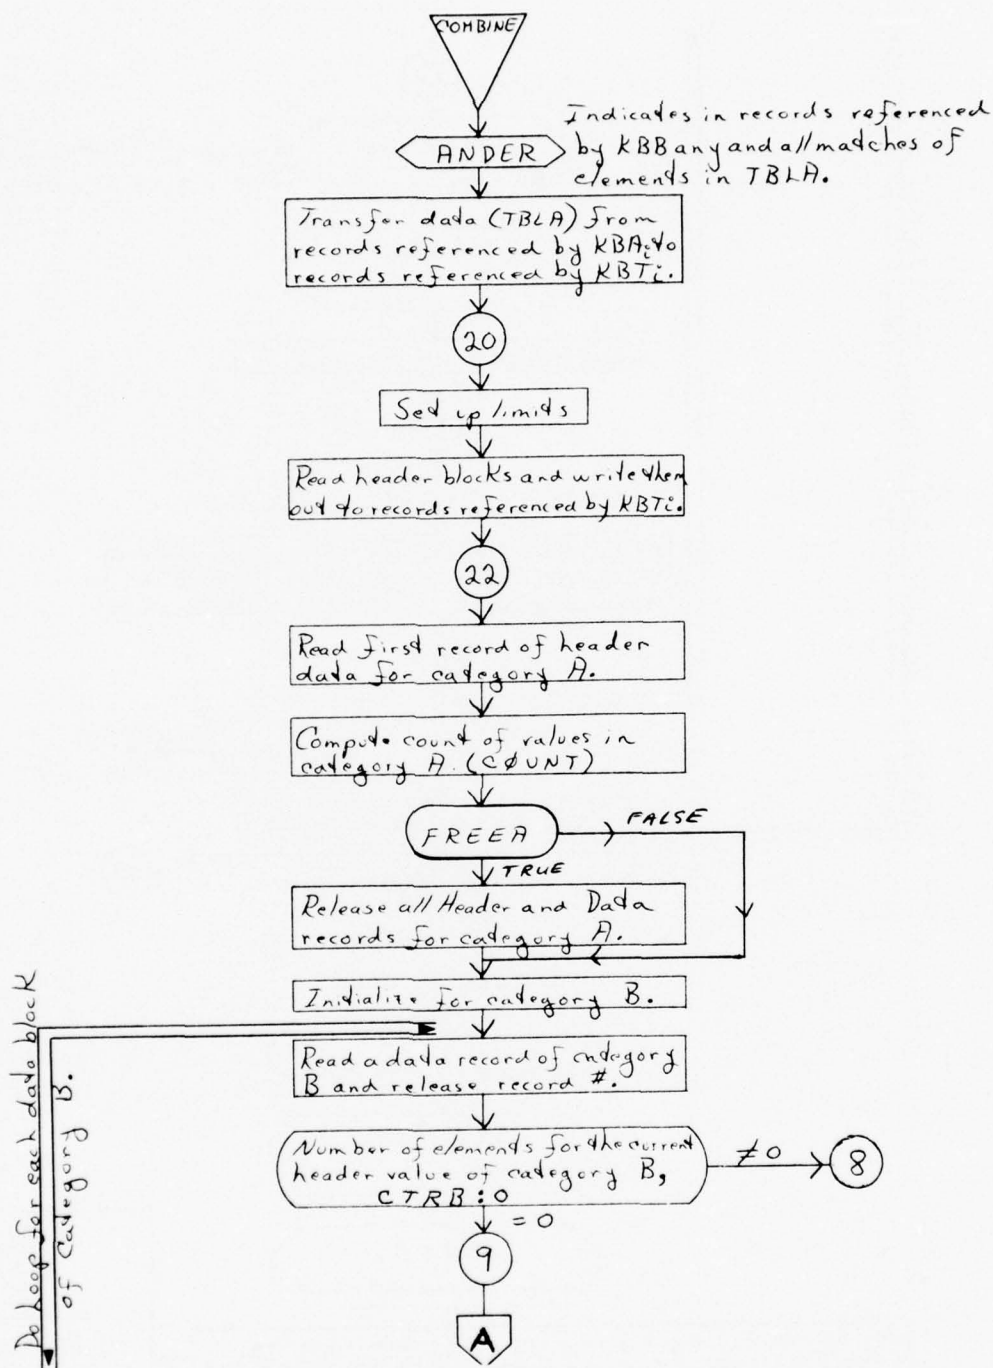 COMBINE
Indicates in records referenced
by KBB any and all matches of
elements in TBLA.
ANDER
Transfer data (TBLA) from
records referenced by KBAi to
records referenced by KBTi.
20
Set up limits
Read header blocks and write them
out to records referenced by KBTi.
22
Read first record of header
data for category A.
Compute count of values in
category A. (CØUNT)
FREEA
FALSE
TRUE
Release all Header and Data
records for category A.
Initialize for category B.
Do loop for each data block
of Category B.
Read a data record of category
B and release record #.
Number of elements for the current
header value of category B,
CTRB : 0
≠0
8
= 0
9
A